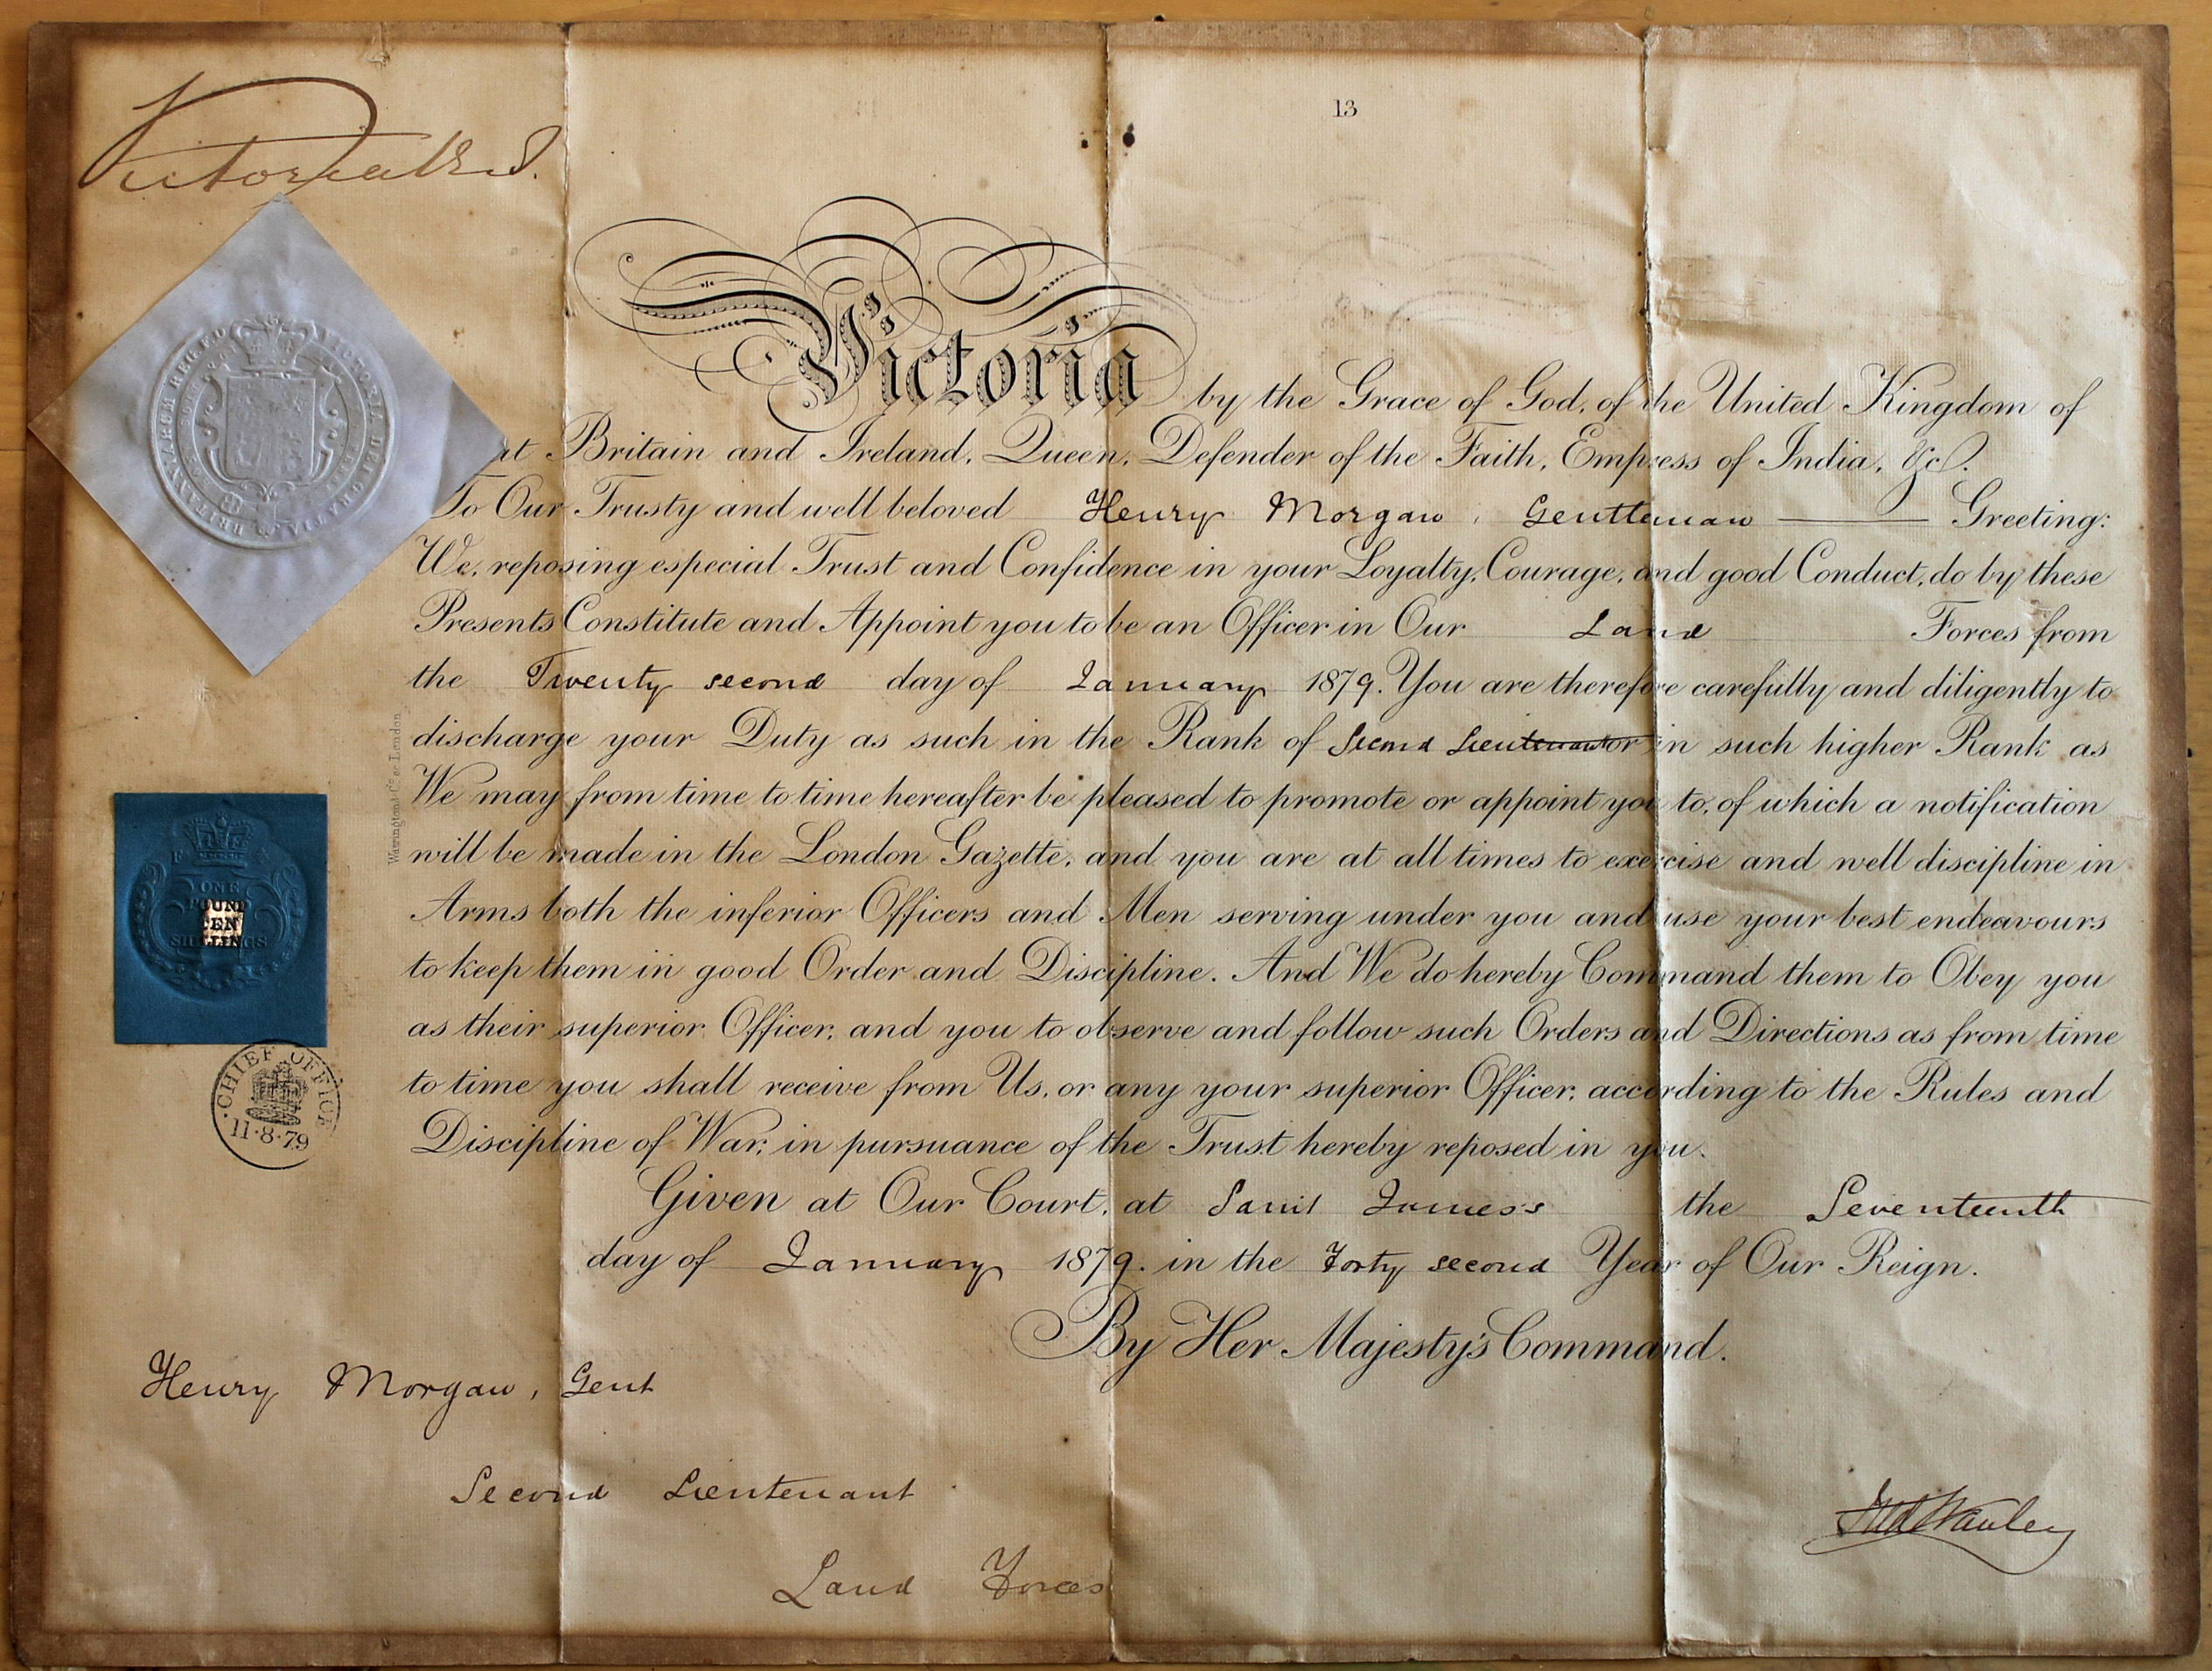 13
Victoria R I
Victoria by the Grace of God, of the United Kingdom of
at Britain and Ireland, Queen, Defender of the Faith, Empress of India, &c.
To Our Trusty and well beloved Henry Morgan, Gentleman Greeting:
We, reposing especial Trust and Confidence in your Loyalty, Courage, and good Conduct, do by these
Presents Constitute and Appoint you to be an Officer in Our Land Forces from
the Twenty second day of January 1879. You are therefore carefully and diligently to
discharge your Duty as such in the Rank of Second Lieutenant or in such higher Rank as
We may from time to time hereafter be pleased to promote or appoint you to, of which a notification
will be made in the London Gazette, and you are at all times to exercise and well discipline in
Arms both the inferior Officers and Men serving under you and use your best endeavours
to keep them in good Order and Discipline. And We do hereby Command them to Obey you
as their superior Officer, and you to observe and follow such Orders and Directions as from time
to time you shall receive from Us, or any your superior Officer, according to the Rules and
Discipline of War, in pursuance of the Trust hereby reposed in you.
Given at Our Court, at Saint James's the Seventeenth
day of January 1879. in the Forty second Year of Our Reign.
By Her Majesty's Command.
VICTORIA DEI GRATIA BRITANNIARUM REG F D
HONI SOIT
Warrington & Co. London
ONE
POUND
TEN
SHILLINGS
CHIEF OFFICE
11·8·79
Henry Morgan, Gent
Second Lieutenant
Land Forces
Stanley